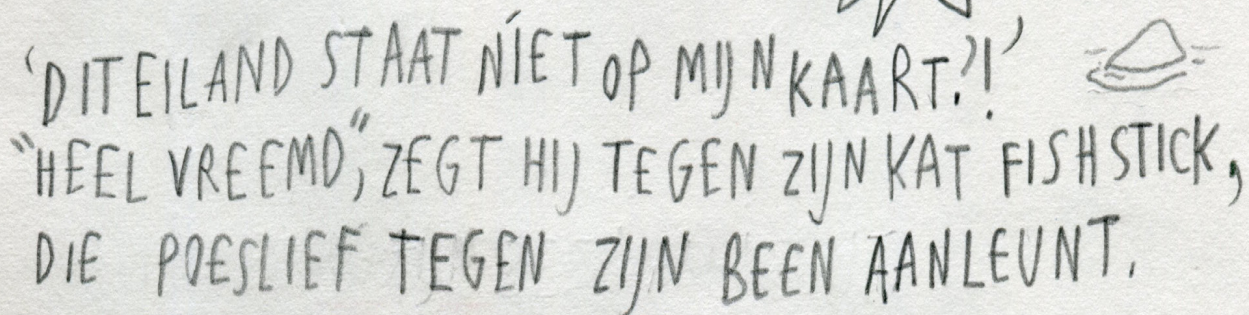 'DIT EILAND STAAT NÍET OP MIJN KAART?!'
"HEEL VREEMD", ZEGT HIJ TEGEN ZIJN KAT FISHSTICK,
DIE POESLIEF TEGEN ZIJN BEEN AANLEUNT.